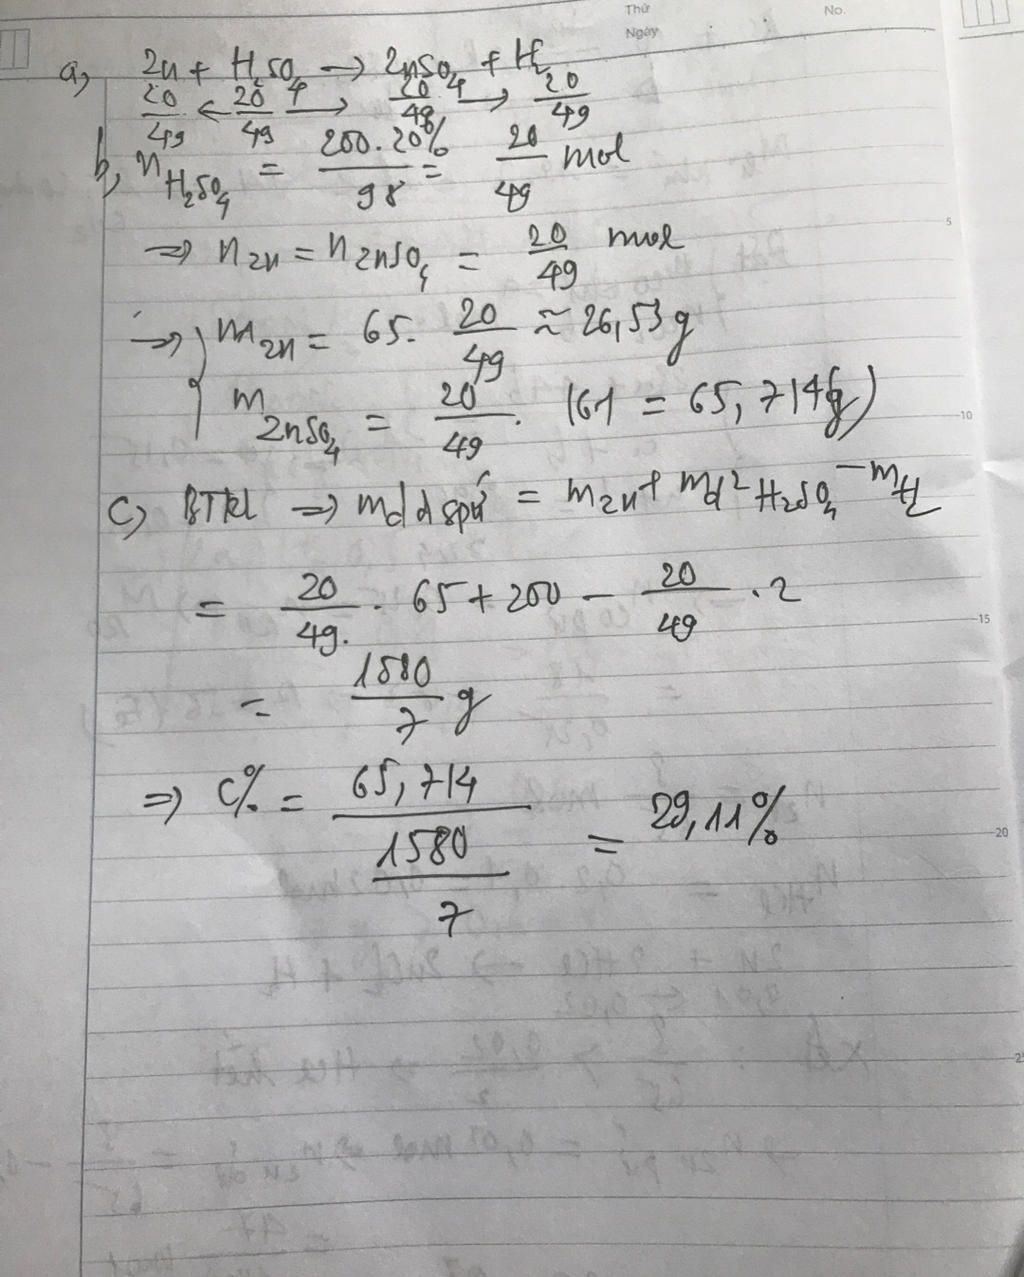 Thứ
Ngày
No.
a, Zn + H₂SO₄ → ZnSO₄ + H₂
20/49 ← 20/49 → 20/49 → 20/49
b, n H₂SO₄ = 200.20%/98 = 20/49 mol
⇒ n Zn = n ZnSO₄ = 20/49 mol
⇒ { m Zn = 65. 20/49 ≈ 26,53 g
m ZnSO₄ = 20/49 . 161 = 65,714 (g)
c, BTKL ⇒ mdd spứ = m Zn + md² H₂SO₄ - m H₂
= 20/49 . 65 + 200 - 20/49 . 2
= 1580/7 g
⇒ C% = 65,714 / 1580/7 = 29,11%
5
10
15
20